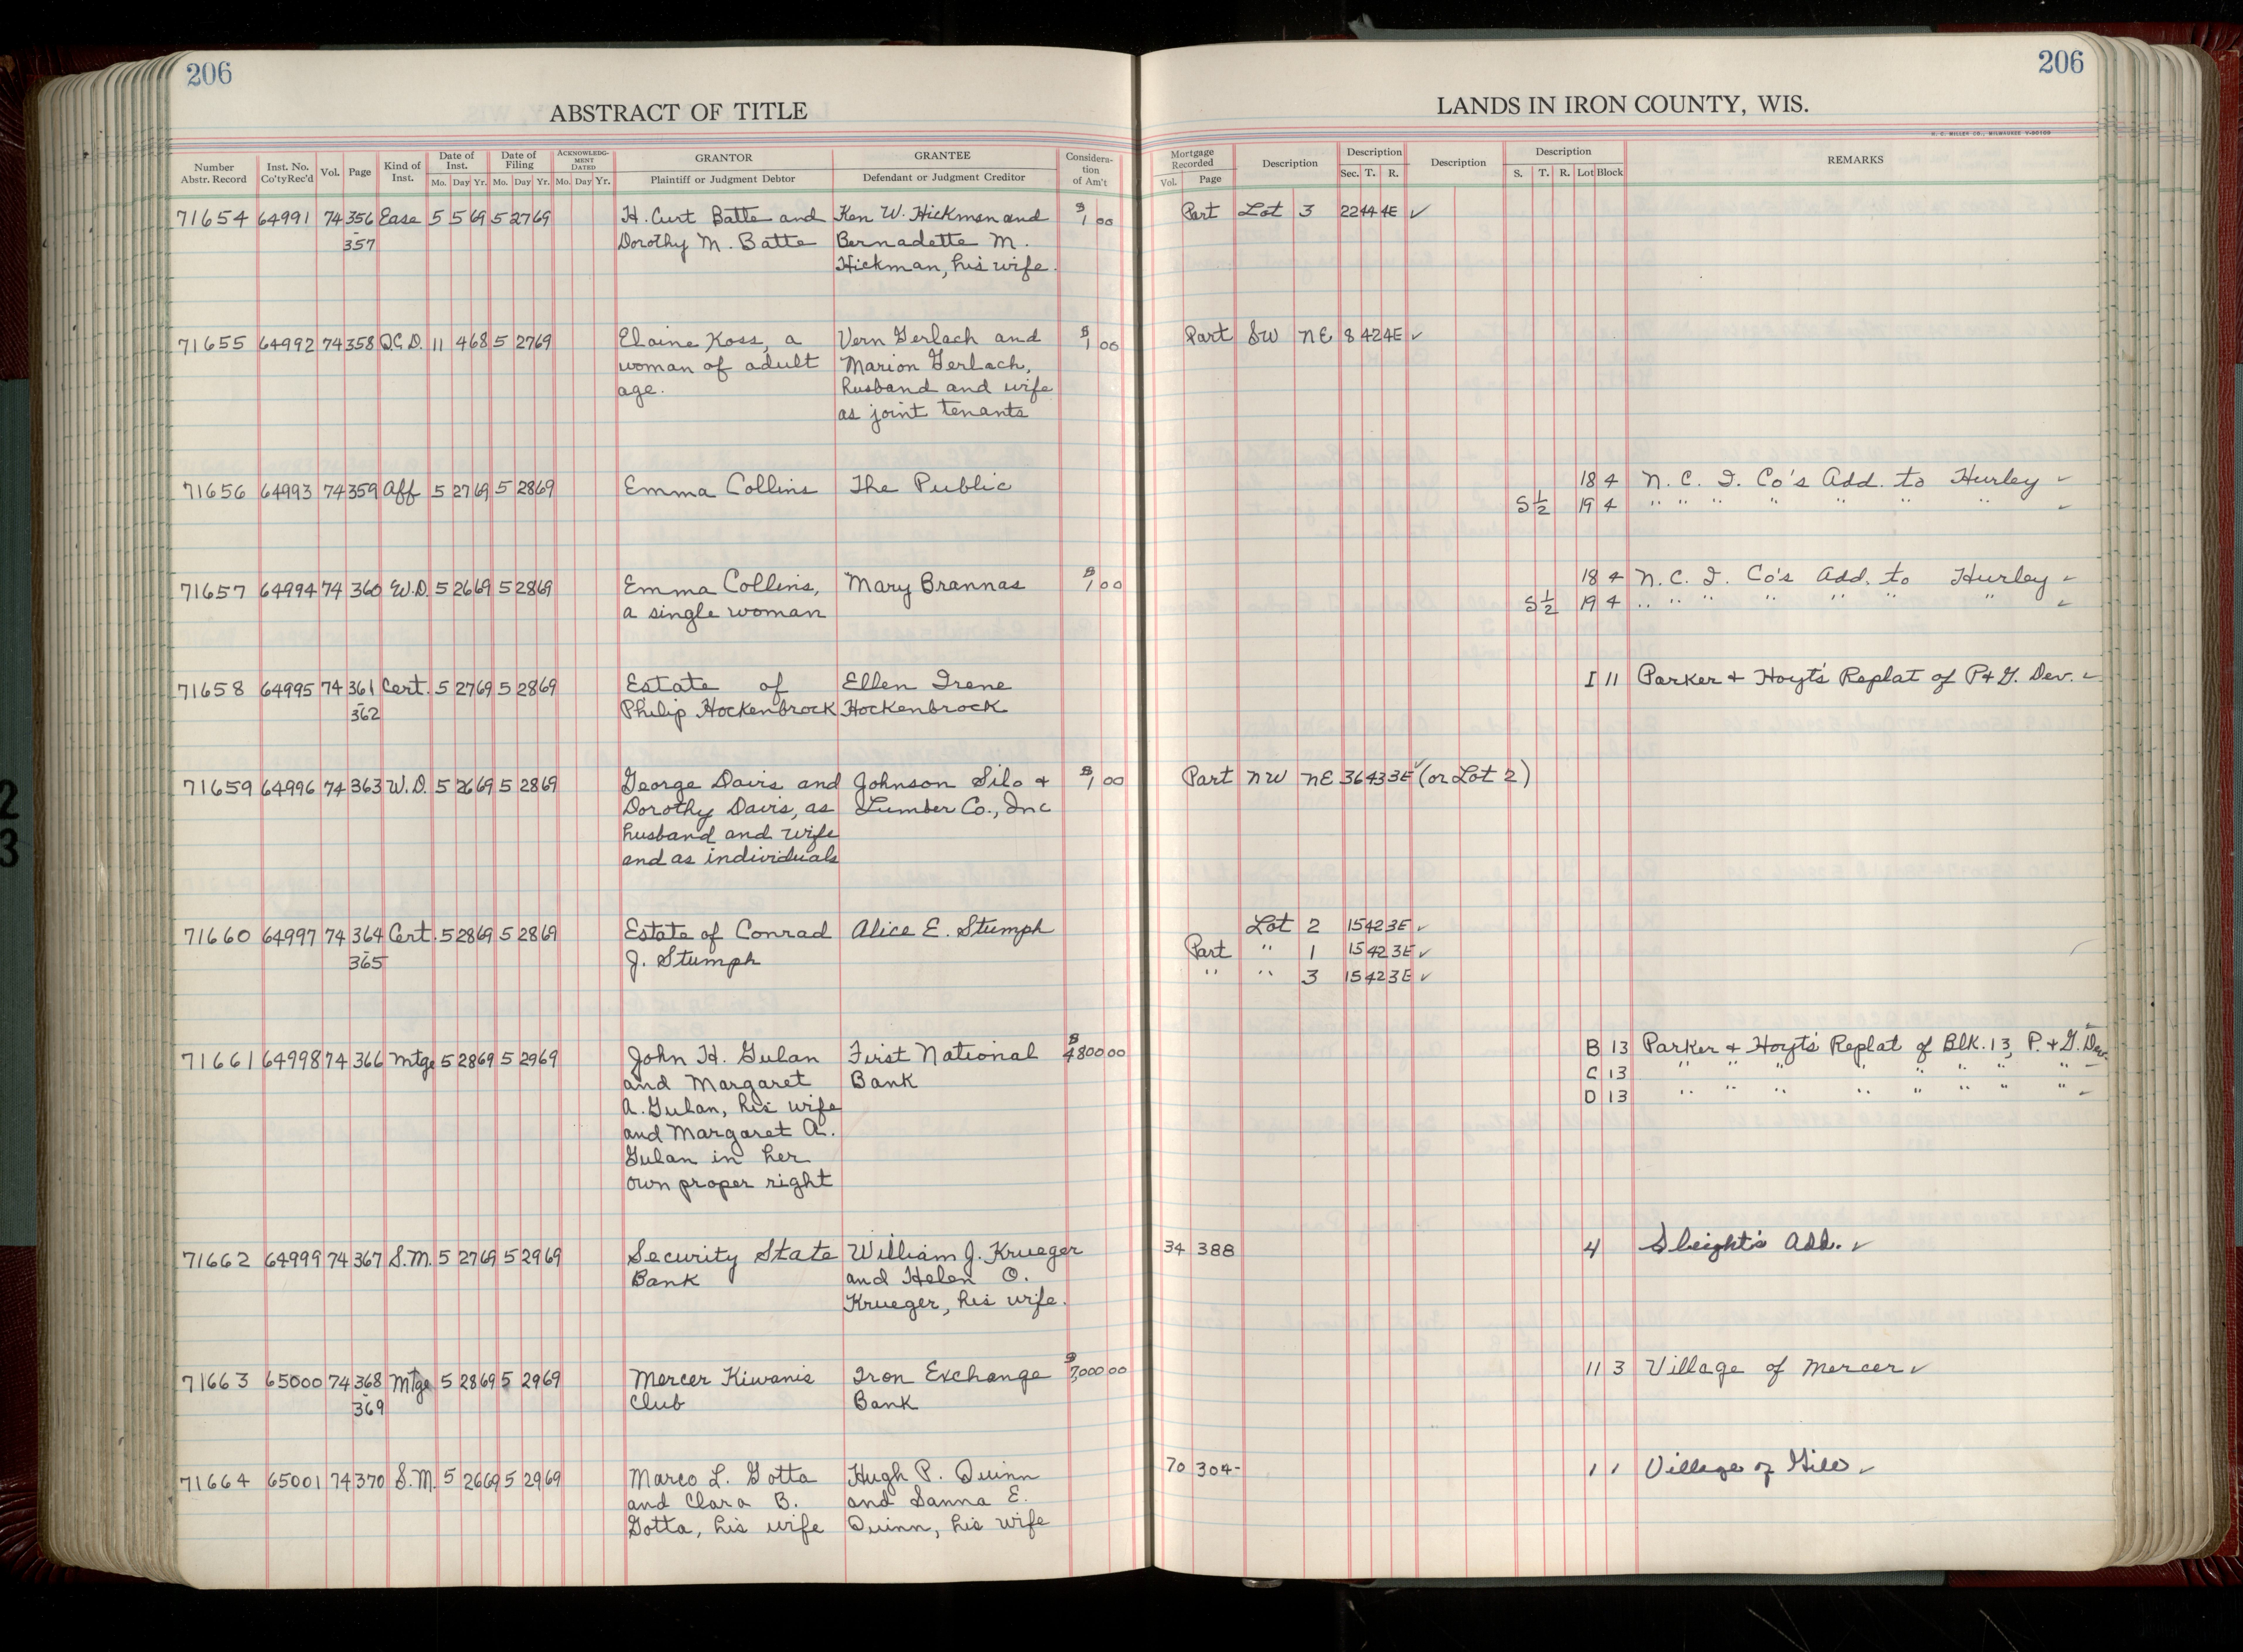 206
206
ABSTRACT OF TITLE
LANDS IN IRON COUNTY, WIS.
H. C. MILLER CO., MILWAUKEE
Number Abstr. Record | Inst. No. Co'tyRec'd | Vol. | Page | Kind of Inst. | Date of Inst. Mo. Day Yr. | Date of Filing Mo. Day Yr. | ACKNOWLEDG-MENT DATED Mo. Day Yr. | GRANTOR Plaintiff or Judgment Debtor | GRANTEE Defendant or Judgment Creditor | Considera-tion of Am't | Mortgage Recorded Vol. Page | Description | Description Sec. T. R. | Description | Description S. T. R. Lot Block | REMARKS
71654 64991 74 356 Ease 5 5 69 5 27 69 H. Curt Batte and Ken W. Hickman and $1 00 Part Lot 3 22 44 4E ✓
-357 Dorothy M. Batte Bernadette M.
Hickman, his wife.
71655 64992 74 358 Q.C.D. 11 4 68 5 27 69 Elaine Koss, a Vern Gerlach and $1 00 Part SW NE 8 42 4E ✓
woman of adult Marion Gerlach,
age. husband and wife
as joint tenants
71656 64993 74 359 Aff 5 27 69 5 28 69 Emma Collins The Public 18 4 N. C. I. Co's Add. to Hurley ✓
S 1/2 19 4 " " " " " " " ✓
71657 64994 74 360 W.D. 5 26 69 5 28 69 Emma Collins, Mary Brannas $1 00 18 4 N. C. I. Co's Add. to Hurley ✓
a single woman S 1/2 19 4 " " " " " " " ✓
71658 64995 74 361 Cert. 5 27 69 5 28 69 Estate of Ellen Irene I 11 Parker + Hoyt's Replat of P+G. Dev. ✓
-362 Philip Hockenbrock Hockenbrock
71659 64996 74 363 W.D. 5 26 69 5 28 69 George Davis and Johnson Silo + $1 00 Part NW NE 36 43 3E ✓ (or Lot 2)
Dorothy Davis, as Lumber Co., Inc
husband and wife
and as individuals
71660 64997 74 364 Cert. 5 28 69 5 28 69 Estate of Conrad Alice E. Stumph Lot 2 15 42 3E ✓
-365 J. Stumph Part " 1 15 42 3E ✓
" " 3 15 42 3E ✓
71661 64998 74 366 Mtge 5 28 69 5 29 69 John H. Gulan First National $4800 00 B 13 Parker + Hoyt's Replat of Blk. 13, P. + G. Dev. ✓
and Margaret Bank C 13 " " " " " " " " ✓
A. Gulan, his wife D 13 " " " " " " " " ✓
and Margaret A.
Gulan in her
own proper right
71662 64999 74 367 S.M. 5 27 69 5 29 69 Security State William J. Krueger 34 388 4 Sleight's Add. ✓
Bank and Helen O.
Krueger, his wife.
71663 65000 74 368 Mtge 5 28 69 5 29 69 Mercer Kiwanis Iron Exchange $7,000 00 11 3 Village of Mercer ✓
-369 Club Bank
71664 65001 74 370 S.M. 5 26 69 5 29 69 Marco L. Gotta Hugh P. Quinn 70 304- 1 1 Village of Gile ✓
and Clara B. and Sanna E.
Gotta, his wife Quinn, his wife
2
3